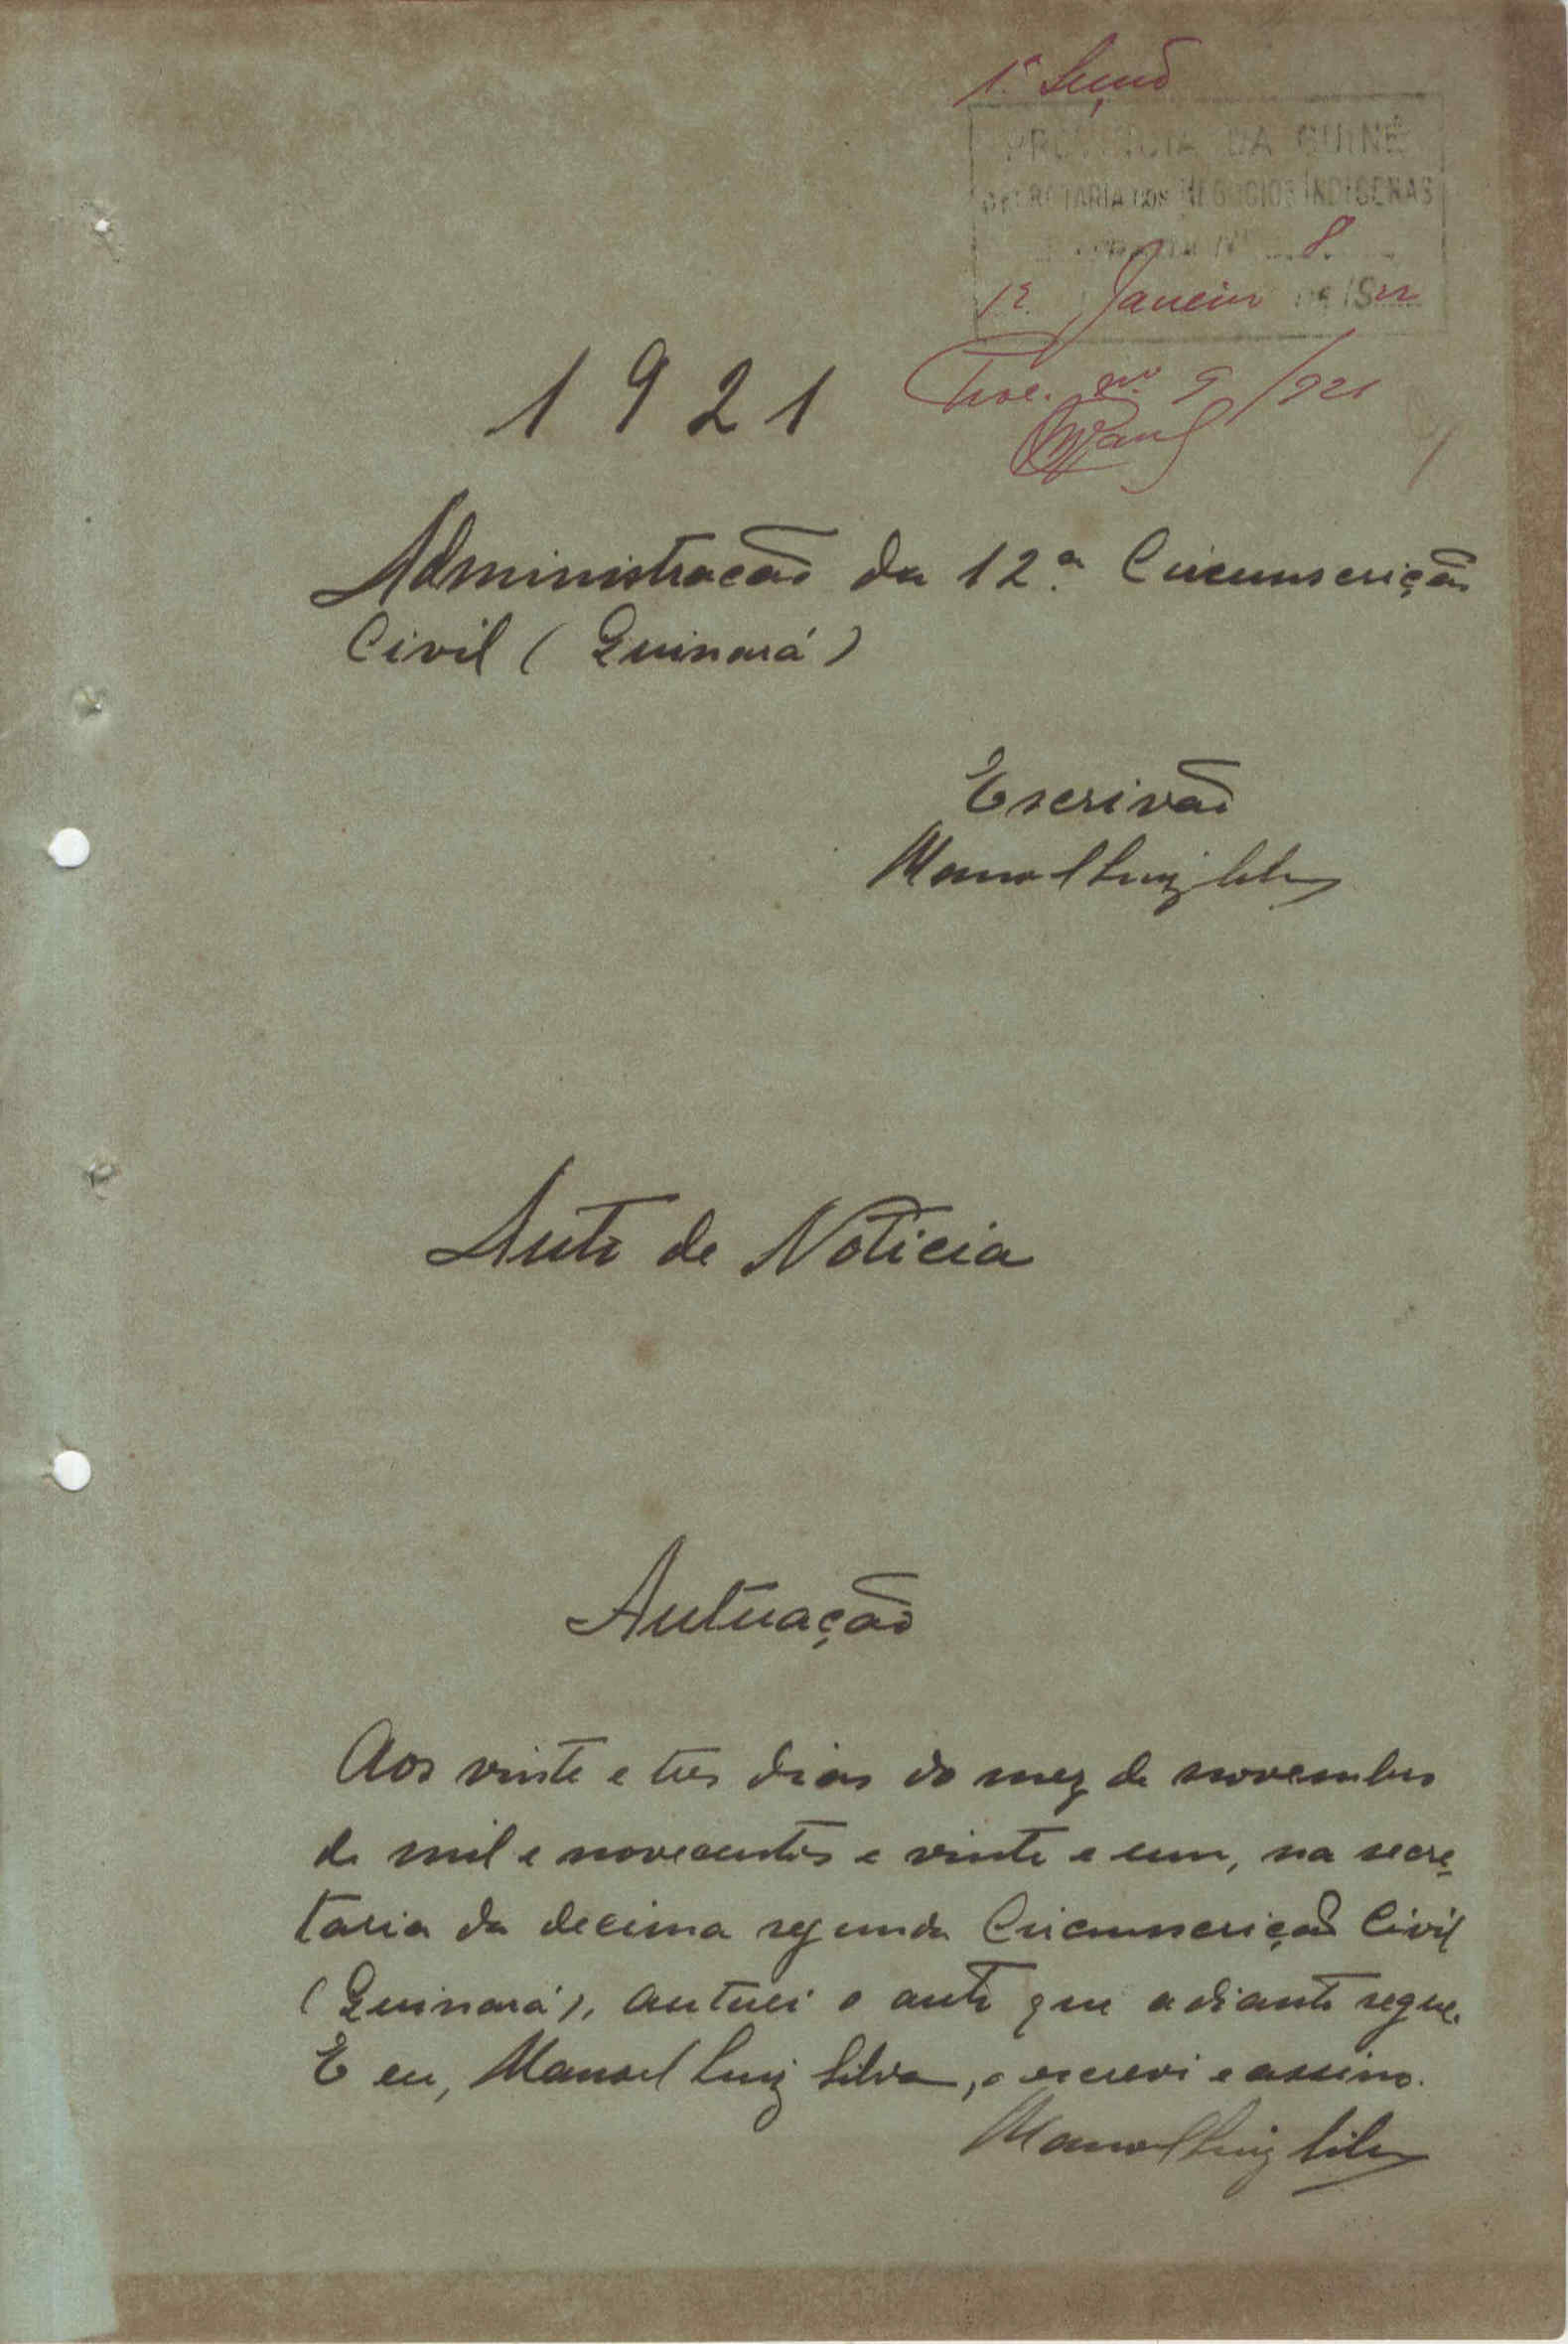 1ª Secção
PROVINCIA DA GUINÉ
SECRETARIA DOS NEGOCIOS INDIGENAS
Nº 8
12 Janeiro DE 1922
Proc. nº 9/921
1921
Administração da 12ª Circunscrição
Civil (Quinará)
Escrivão
Manoel Luiz Silva
Auto de Noticia
Autuação
Aos vinte e tres dias do mez de novembro
de mil e novecentos e vinte e um, na secre-
taria da decima segunda Circunscrição Civil
(Quinará), autuei o auto que adiante segue.
E eu, Manoel Luiz Silva, o escrevi e assino.
Manoel Luiz Silva